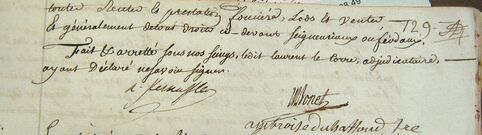 toutes Rentes et prestations foncieres, Lods et ventes
Et généralement de tous droits ci-devant seigneuriaux ou féodaux.
129.
Fait et arretté sous nos seings, ledit laurent le , adjudicataire,
ayant Déclaré ne savoir signer.
Monet
ambroise